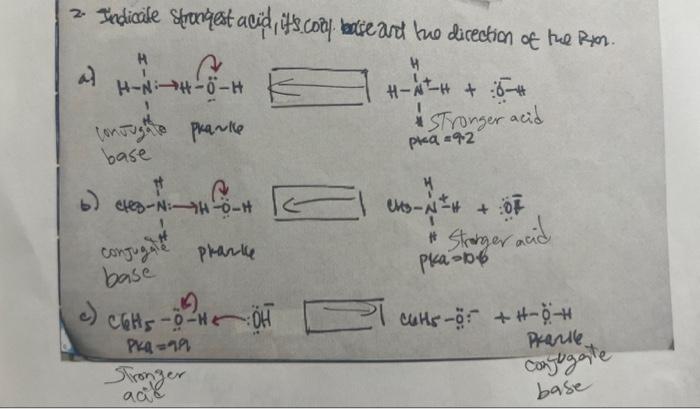 2. Indicate strongest acid, it's conj. base and the direction of the Rxn.
a) H-N:→H-Ö-H ← H-N⁺-H + :Ö-H
H H H
conjugate base
Stronger acid
pka = 9.2
b) CH3-N:→H-Ö-H ← CH3-N⁺-H +
H H H H
conjugate base
Stronger acid
c) C6H5-Ö-H ← :ÖH⁻ → C6H5-Ö:⁻ + H-Ö-H
Pka = 9.9
Stronger acid
conjugate base